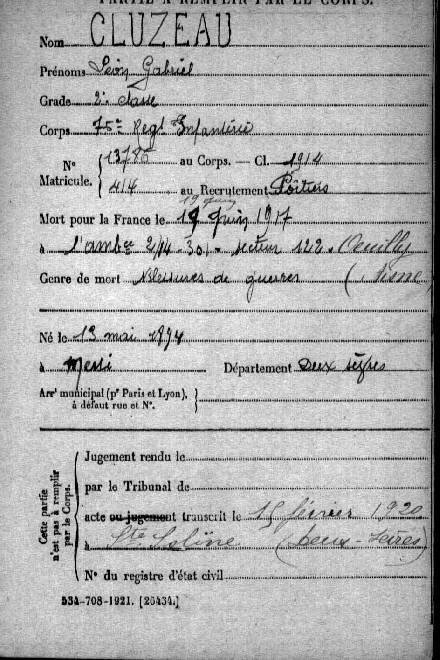 PARTIE A REMPLIR PAR LE CORPS.
Nom CLUZEAU
Prénoms Léon Gabriel
Grade 2e classe
Corps 75e Regt Infanterie
N° Matricule. { 13786 au Corps. — Cl. 1914
414 au Recrutement Poitiers
19 juin
Mort pour la France le 19 Juin 1917
à l'ambce 2/14 - 301 - secteur 122 - Oeuilly
Genre de mort Blessures de guerres (Aisne)
Né le 13 mai 1894
à Messé Département Deux sèvres
Arrt municipal (pr Paris et Lyon), à défaut rue et N°.
Cette partie n'est pas à remplir par le Corps.
Jugement rendu le
par le Tribunal de
acte ou jugement transcrit le 15 février 1920
à Ste Soline (Deux-Sèvres)
N° du registre d'état civil
534-708-1921. [26434.]